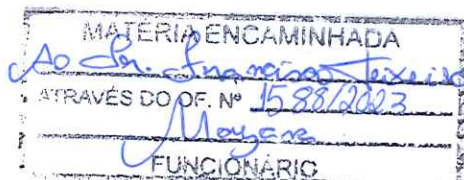 MATÉRIA ENCAMINHADA
Ao Sr. Francisco Teixeira
ATRAVÉS DO OF. Nº 1588/2023
Mayara
FUNCIONÁRIO